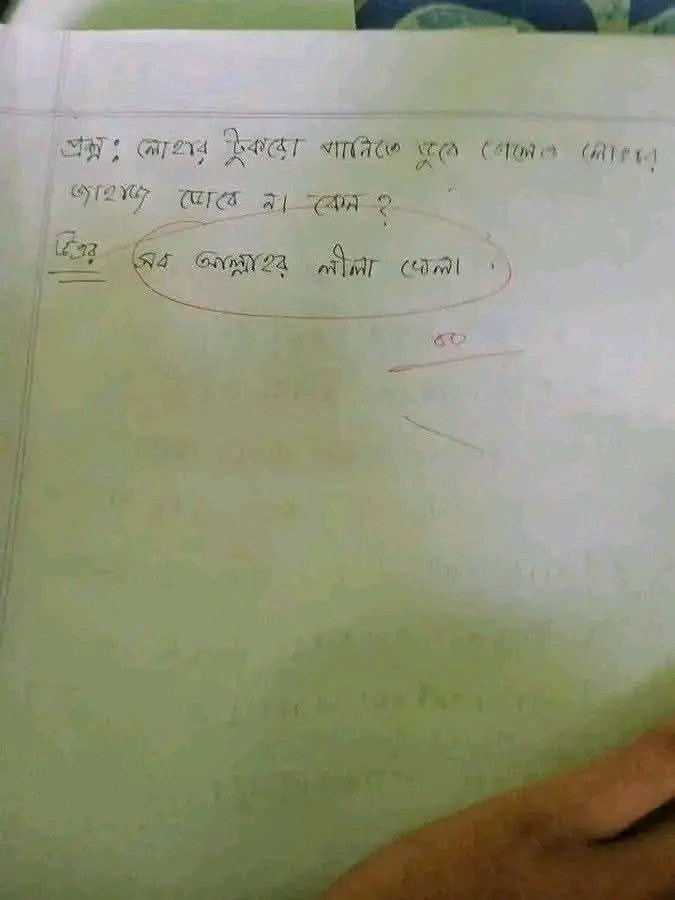 প্রশ্ন: লোহার টুকরো পানিতে ডুবে গেলেও লোহার
জাহাজ ডোবে না। কেন?
উত্তর সব আল্লাহর লীলা খেলা।
০০